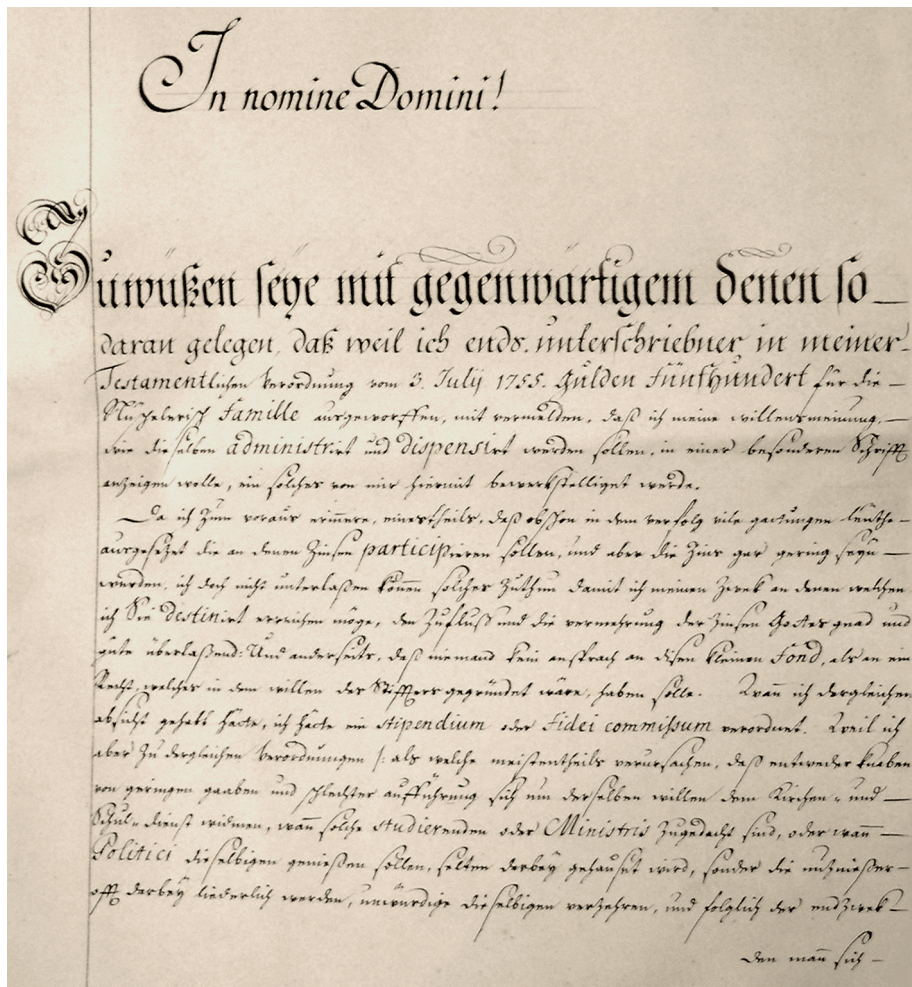 In nomine Domini!
Zuwüßen seye mit gegenwärtigem denen so
daran gelegen, daß weil ich ends. unterschriebner in meiner
Testamentlichen Verordnung vom 3. Julij 1755. Gulden Fünfhundert für die
Nüschelerisch Famille ausgeworffen, mit vermelden, daß ich meine willensmeinung,
wie dieselben administrirt und dispensirt werden sollen, in einer besonderen Schrifft
anzeigen wolle, ein solches von mir hiermit bewerkstelliget werde.
Da ich zum voraus erinnere, eines theils, daß obschon in dem verfolg vile gattungen leuthe
ausgesezet die an denen Zinsen participieren sollen, und aber die Zins gar gering seyn
wurden, ich doch nicht unterlaßen könen solches zuthun damit ich meinen Zwek an denen welchen
ich Sie destinirt erreichen möge, den Zufluss und die vermehrung der Zinsen Gottes gnad und
güte überlaßend: Und anderseits, daß niemand kein ansprach an disen kleinen Fond, als an ein
Recht, welches in dem willen des Stiffters gegründet wäre, haben solle. Wan ich dergleichen
absicht gehabt hätte, ich hätte ein stipendium oder Fidei commissum verordnet. Weil ich
aber zu dergleichen Verordnungen /: als welche meistentheils verursachen, daß entweder knaben
von geringen gaaben und schlechter aufführung sich um derselben willen dem Kirchen- und
Schul-dienst widmen, wan solche studierenden oder Ministris zugedacht sind, oder wan
Politici dieselbigen genießen sollen, selten darbey gehauset wird, sonder die nutznießer
offt darbey liederlich werden, unwürdige dieselbigen verzehren, und folglich der endzwek
den man sich